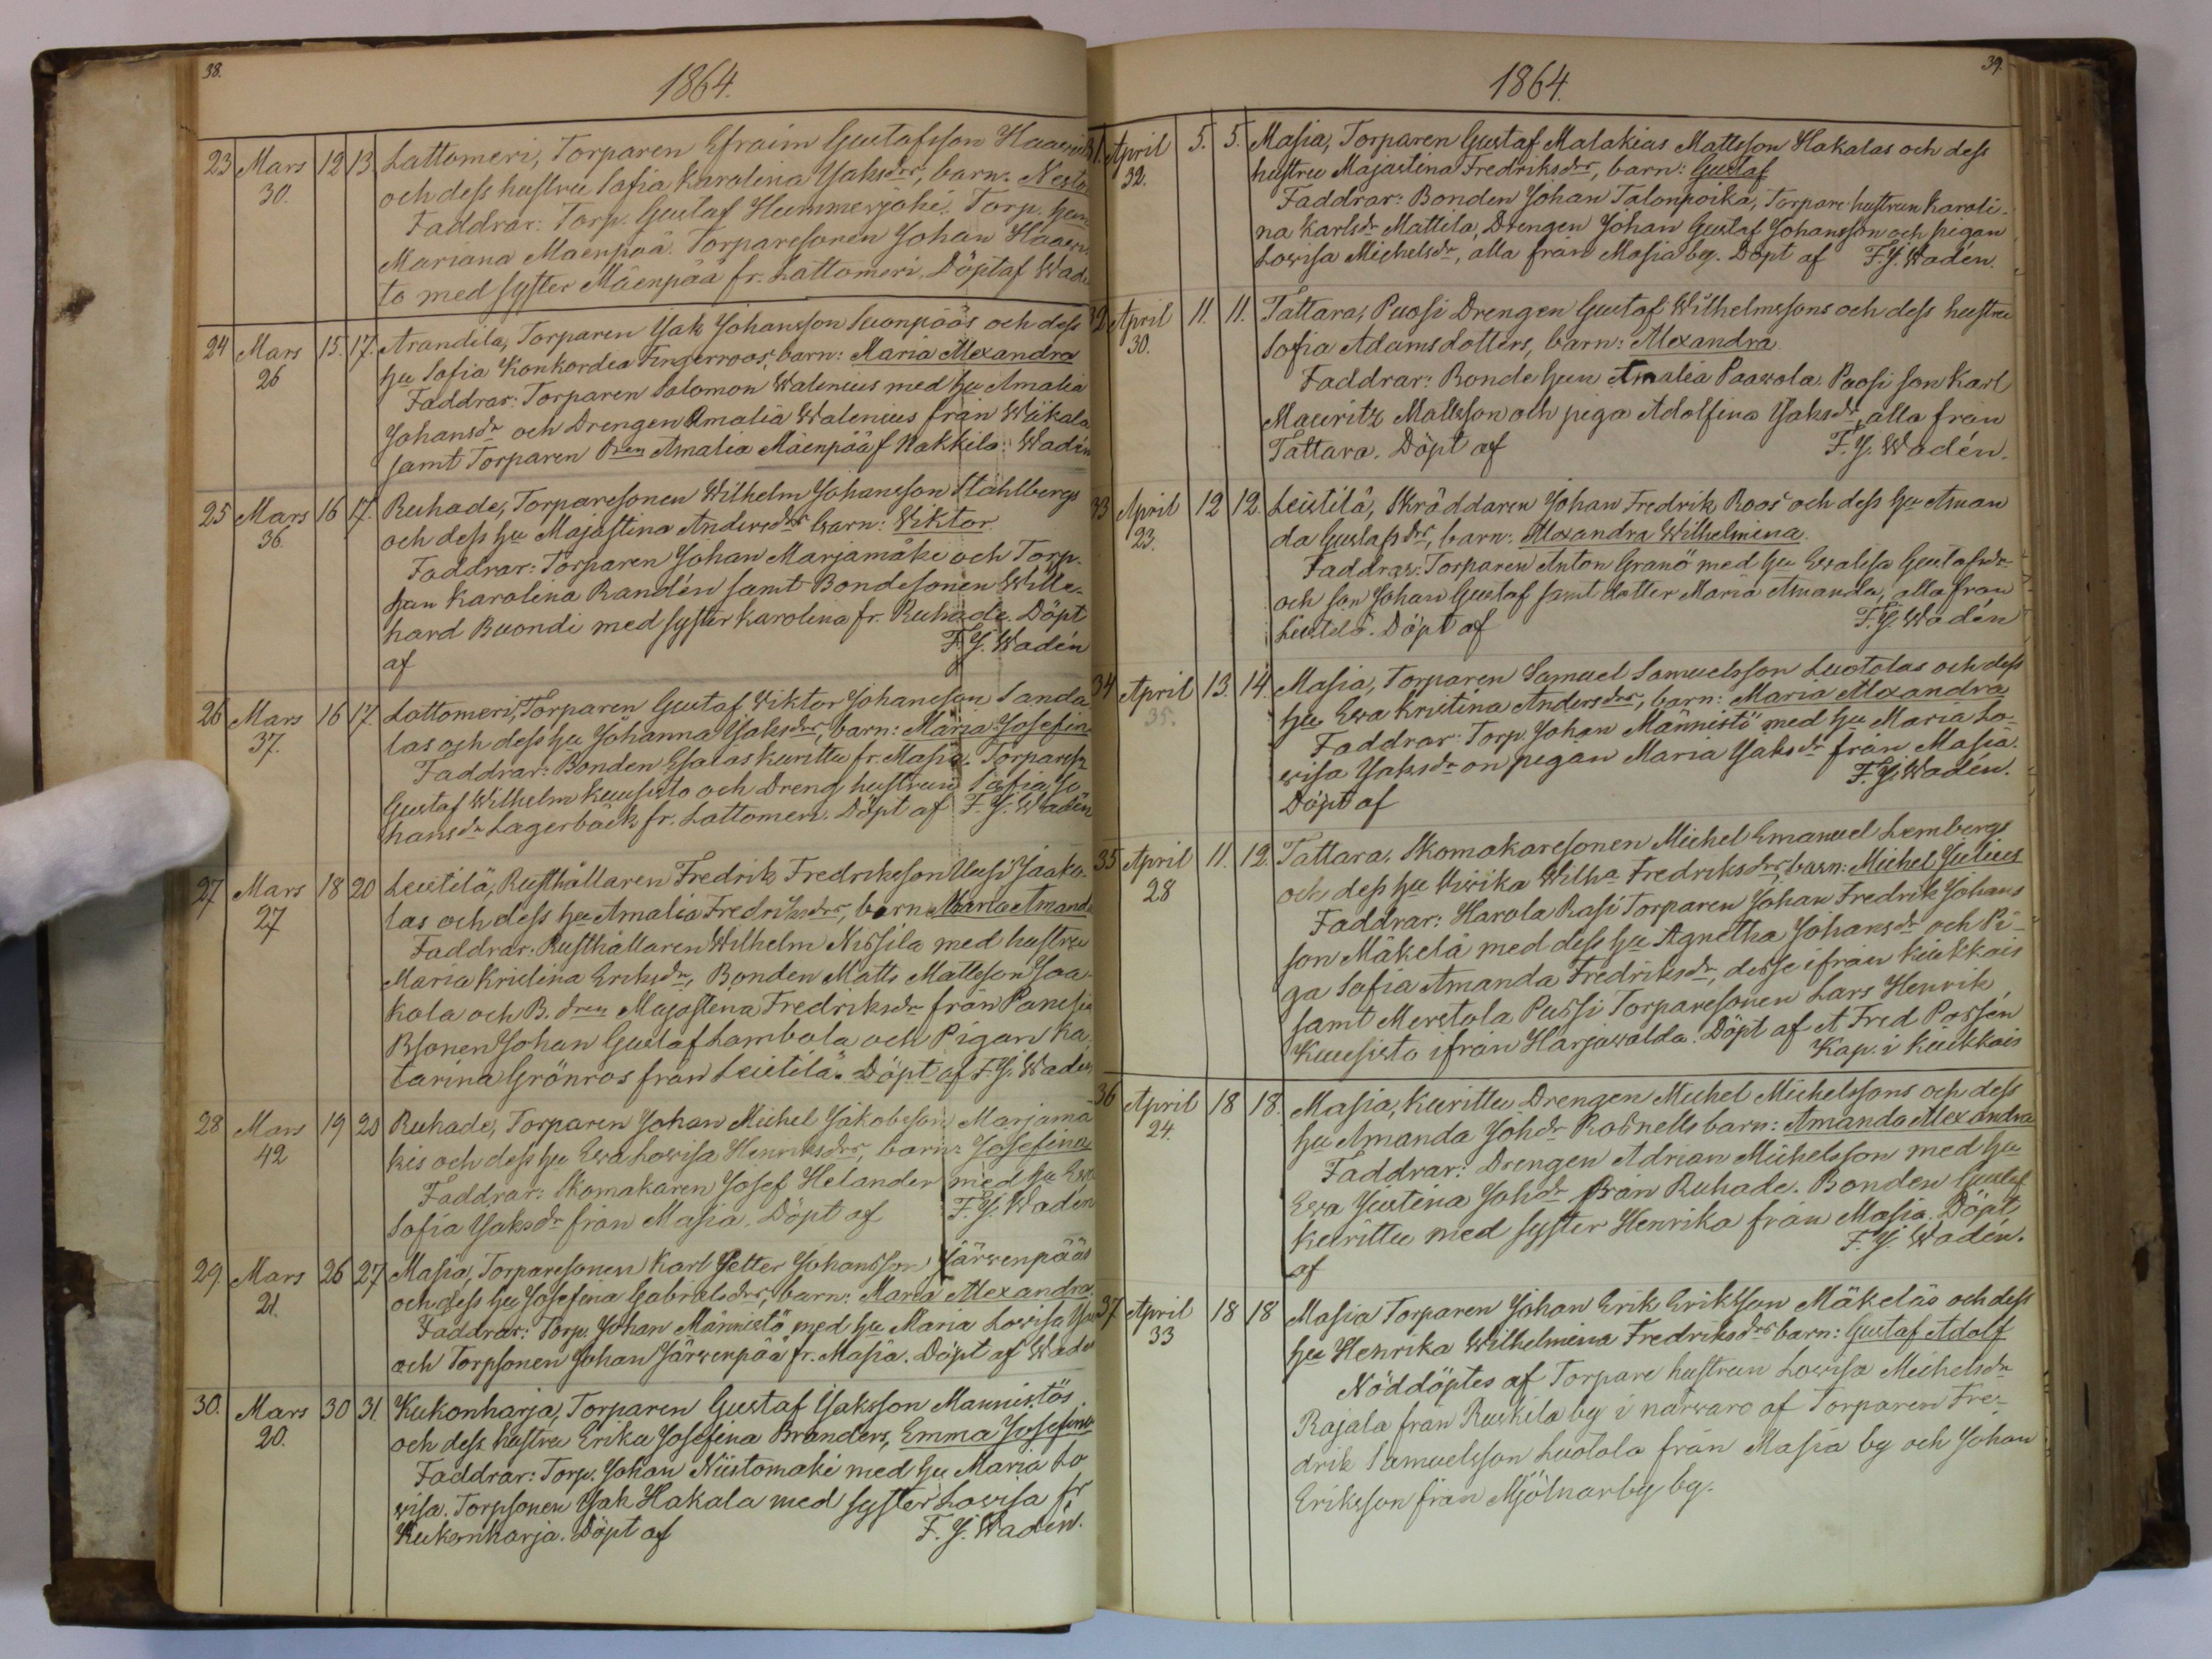 38.
1864.
23 Mars 12 13. Lattomeri, Torparen Efraim Gustafsson
30. och dess hustru Sofia Karolina Isaksdrs, barn: Nesto
Faddrar: Torp. Gustaf Hummerjoki. Torp. hun
Mariana Mäenpää. Torparesonen Johan
to med syster Mäenpää fr. Lattomeri. Döpt af Wadé
24 Mars 15. 17. Arandila, Torparen Isak Johansson Suonpääs och dess
26 hu Sofia Konkordea Fingerroos, barn: Maria Alexandra
Faddrar: Torparen Salomon Walenius med hu Amalia
Johansdr och Drengen Amalia Walenius från Wäkala
samt Torparen Amalia Mäenpää f Nakkila: Wadén
25 Mars 16 17. Ruhade, Torparesonen Wilhelm Johansson Ståhlbergs
36. och dess hu Majastina Andersdrs barn: Viktor.
Faddrar: Torparen Johan Marjamäki och Torp.
hun Karolina Randén samt Bondesonen Wille-
hard Buondi med syster Karolina fr. Ruhade. Döpt
af F. J. Wadén
26 Mars 16 17. Lattomeri, Torparen Gustaf Viktor Johansson Sanda
37. las och dess hu Johanna Isaksdrs, barn: Maria Josefin
Faddrar: Bonden Esaias Kurittu fr. Masia. Torpares
Gustaf Wilhelm Kuusisto och Dreng hustrun Sofia Jo
hansdr Lagerbäck fr. Lattomeri. Döpt af F. J. Wadén
27 Mars 18 20 Leistilä, Rusthållaren Fredrik Fredriksson Uusi Jaako-
27 las och dess hu Amalia Fredriksdrs, barn Maria Amanda
Faddrar. Rusthållaren Wilhelm Nissila med hustru
Maria Kristina Eriksdr, Bonden Matts Mattsson Jaa-
kola och B. dren Majastina Fredriksdr från Panelia
Bsonen Johan Gustaf Lambola och Pigan Ka
tarina Grönros från Leistilä. Döpt af F. J. Wadén
28 Mars 19 20 Ruhade, Torparen Johan Michel Jakobsson Marjamä
42 kis och dess hu Ewa Lowisa Henriksdrs, barn: Josefina
Faddrar: Skomakaren Josef Helander med hu Ewa
Sofia Isaksdr från Masia. Döpt af F. J. Wadén
29. Mars 26 27 Masia, Torparesonen Karl Petter Johansson Järwenpääs
21. och dess hu Josefina Gabrielsdrs, barn: Maria Alexandra.
Faddrar: Torp. Johan Männistö med hu Maria Lowisa
och Torpsonen Johan Järwenpää fr. Masia. Döpt af Wadé
30. Mars 30 31. Kukonharja, Torparen Gustaf Isaksson Mannistös
20. och dess hustru Erika Josefina Branders, Emma Josefina
Faddrar: Torp. Johan Niistomäki med hu Maria Lo
wisa. Torpsonen Isak Hakala med syster Lowisa fr
Kukonharja. Döpt af F. J. Wadén.
39.
1864.
31. April 5. 5. Masia, Torparen Gustaf Malakias Mattsson Hakalas och dess
32. hustru Majastina Fredriksdrs, barn: Gustaf
Faddrar: Bonden Johan Talonpoika, Torpare hustrun Karoli-
na Karlsdr Mattila, Drengen Johan Gustaf Johansson och pigan
Lowisa Michelsdr, alla från Masia by. Döpt af F. J. Wadén.
32 April 11. 11. Tattara, Puosi Drengen Gustaf Wilhelmssons och dess hustru
30. Sofia Adamsdotters, barn: Alexandra
Faddrar: Bonde hun Amalia Paawola. Puosi son Karl
Mauritz Mattsson och piga Adolfina Isaksdr, alla från
Tattara. Döpt af F. J. Wadén.
33 April 12 12. Leistilä, Skräddaren Johan Fredrik Roos och dess hu Aman
23. da Gustafsdrs, barn: Alexandra Wilhelmina.
Faddrar: Torparen Anton Granö med hu Ewalisa Gustafsdr
och son Johan Gustaf samt dotter Maria Amanda, alla från
Leistilä. Döpt af F. J. Wadén
34 April 13. 14. Masia, Torparen Samuel Samuelsson Luotolas och dess
35. hu Ewa Kristina Andersdrs, barn: Maria Alexandra
Faddrar: Torp. Johan Männistö med hu Maria Lo-
wisa Isaksdr on pigan Maria Isaksdr från Masia.
Döpt af F. J. Wadén.
35 April 11. 12. Tattara, Skomakaresonen Michel Emanuel Lembergs
28 och dess hu Wiwika Wilha Fredriksdrs, barn: Michel Julius
Faddrar: Harola Rasi Torparen Johan Fredrik Johans
son Mäkelä med dess hu Agnetha Johansdr och Pi-
ga Sofia Amanda Fredriksdr, desse ifrån Kiukkais
samt Merstola Pussi Torparesonen Lars Henrik
Kuusisto ifrån Harjawalda. Döpt af A Fred Possén
Kap. i Kiukkais
36 April 18 18. Masia, Kurittu Drengen Michel Michelssons och dess
24. hu Amanda Johdr Robnells barn: Amanda Alexandra
Faddrar: Drengen Adrian Michelsson med hu
Ewa Justina Johdr från Ruhade. Bonden Gustaf
Kurittu med syster Henrika från Masia. Döpt
af F. J. Wadén.
37 April 18 18 Masia Torparen Johan Erik Eriksson Mäkeläs och dess
33 hu Henrika Wilhelmina Fredriksdrs barn: Gustaf Adolf
Nöddöptes af Torpare hustrun Lowisa Michelsdr
Rajala från Ruskila by i närwaro af Torparen Fre-
drik Samuelsson Luotola från Masia by och Johan
Eriksson från Mjölnarby by.